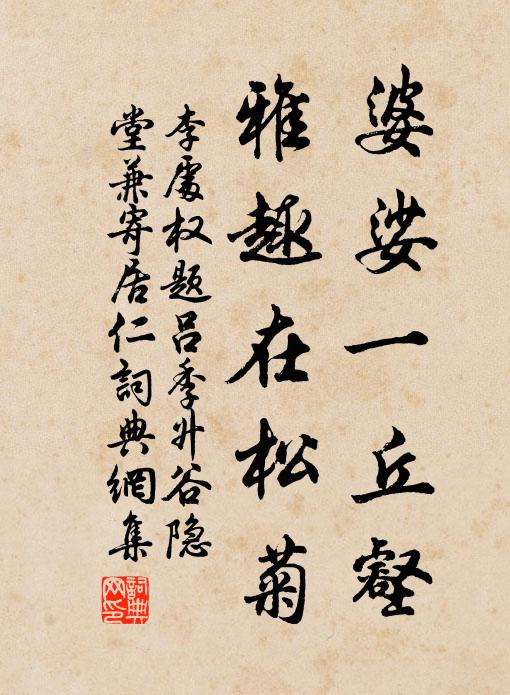 婆娑一丘壑
雅趣在松菊
李處权题吕季升谷隐
堂兼寄居仁詞典網集
詞典網印